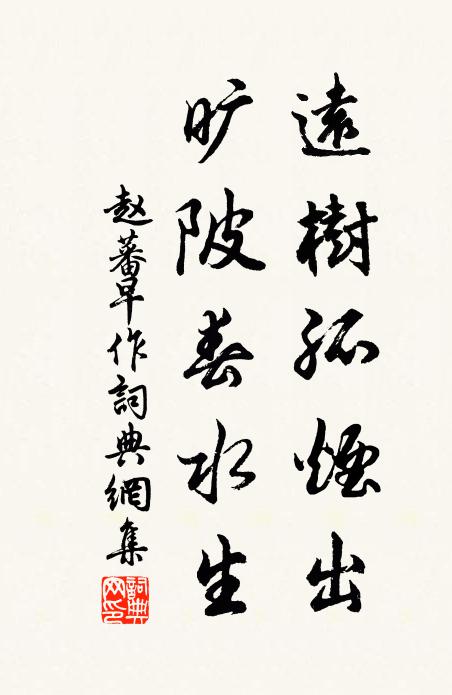 遠樹孤煙出
旷陂春水生
赵蕃早作詞典網集
詞典网印